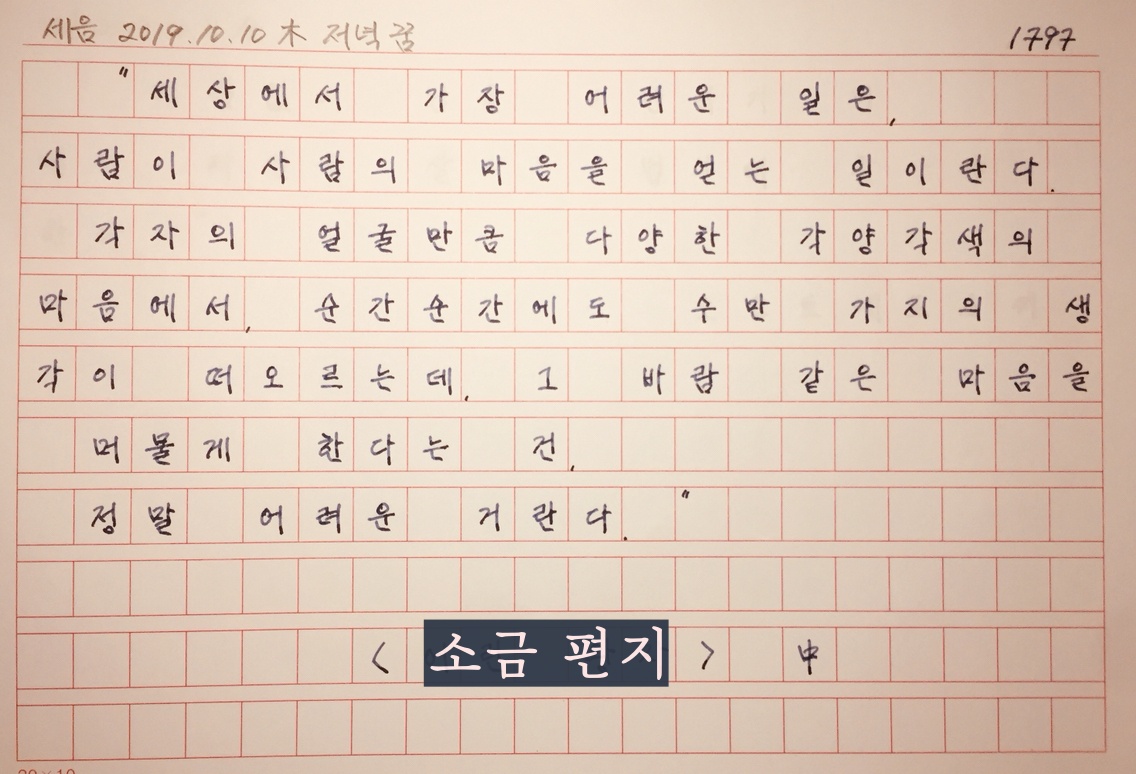 세음 2019.10.10 木 저녁 꿈 1797
"세상에서 가장 어려운 일은,
사람이 사람의 마음을 얻는 일이란다.
각자의 얼굴만큼 다양한 각양각색의
마음에서, 순간순간에도 수만 가지의 생
각이 떠오르는데, 그 바람 같은 마음을
머물게 한다는 건,
정말 어려운 거란다."
< 소금 편지 > 中